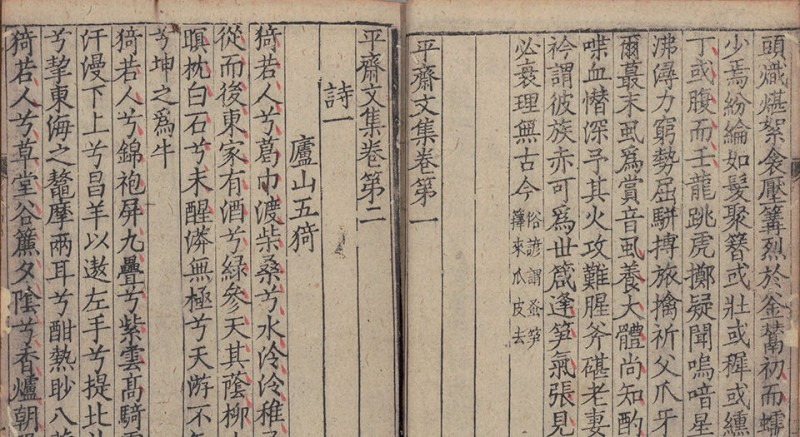 頭熾煁絮衾壓篝烈於釡鬵初而蠕
少焉紛綸如髮聚簮或壯或穉或纁
丁或腹而壬龍跳虎擲疑聞嗚喑星
沸潯力窮勢屈駢搏旅擒祈父爪牙
爾蕞末虱爲賞音虱養大體尚知酌
喋血憯深予其火攻難腥斧碪老妻
衿謂彼族赤可爲世箴逢笋氣張見
必衰理無古今俗諺謂蝨笋籜來瓜皮去
平齋文集卷第一
平齋文集卷第二
詩一
廬山五猗
猗若人兮葛巾渡柴桑兮水泠泠稚
從而後東家有酒兮緑參天其蔭柳
瞑枕白石兮未醒漭無極兮天游不
兮坤之爲牛
猗若人兮錦袍屏九疊兮紫雲髙騎
汗漫下上兮昌羊以遨左手兮提北
兮挈東海之鼇摩兩耳兮酣熱眇八
猗若人兮草堂谷簾夕陰兮香爐朝